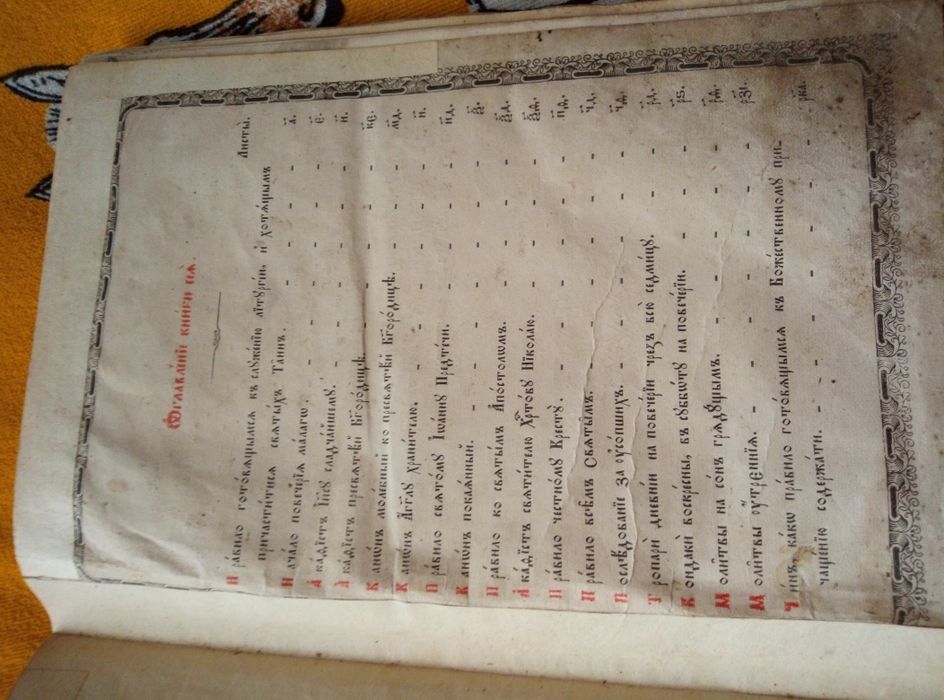 Ѡглавле́нїе кни́ги сеѧ̀.
Листы̀.
Пра́вило гото́вѧщымсѧ къ слꙋже́нїю лїтꙋргі́и, и҆ хотѧ́щымъ
причасти́тисѧ свѧты́хъ Та́инъ. - - - - а҃.
Нача́ло повече́рїѧ ма́лагѡ. - - - - є҃.
А҆ка́ѳїстъ І҆и҃сꙋ сладча́йшемꙋ. - - - - и҃.
А҆ка́ѳїстъ пресвѧтѣ́й Бг҃оро́дицѣ. - - - - к҃є.
Канѡ́нъ моле́бный ко пресвѧтѣ́й Бг҃оро́дицѣ. - - - м҃д.
Канѡ́нъ А҆́гг҃лꙋ храни́телю. - - - - н҃.
Пра́вило свѧто́мꙋ І҆ѡа́ннꙋ Предте́чи. - - - н҃д.
Канѡ́нъ покаѧ́нный. - - - -
Пра́вило ко свѧты̑мъ А҆по́столѡмъ. - - -
А҆ка́ѳїстъ свѧти́телю Хрⷭ҇то́вꙋ Нїкола́ю. - - -
Пра́вило честно́мꙋ Крестꙋ̀. - - - - п҃д.
Пра́вило всѣ̑мъ Свѧты̑мъ. - - - - ч҃д.
Послѣ́дованїе за ᲂу҆со́пшихъ. - - - - ч҃д.
Тропари̑ дне́внїи на повече́рїи чрезъ всю̀ седми́цꙋ. - - р҃д.
Кондаки̑ воскре́сны, въ сꙋббѡ́тꙋ на повече́рїи. - - - р҃ѕ.
Моли̑твы на со́нъ грѧдꙋ́щымъ. - - - - р҃д.
Моли̑твы ᲂу҆́трєннїѧ. - - - - рз҃і.
Чи́нъ, ка́кѡ пра́вило гото́вѧщымсѧ къ Боже́ственномꙋ при-
чаще́нїю содержа́ти. - - - - рк҃а.